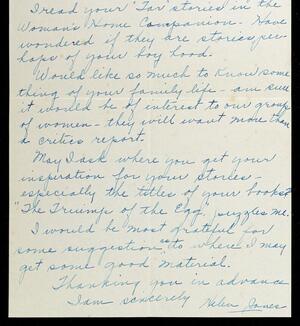 I read your "Far stories in the
Woman's Home Companion. Have
wondered if they are stories, per-
haps of your boy hood.
Would like so much to know some
thing of your family life - am sure
it would be of interest to our group
of women - they will want more than
a critics report.
May I ask where you get your
inspiration for your stories -
especially the titles of your books?
"The Triump of the Egg" puzzles me.
I would be most grateful for
some suggestion as to where I may
get some good material.
Thanking you in advance
I am sincerely Helen Jones